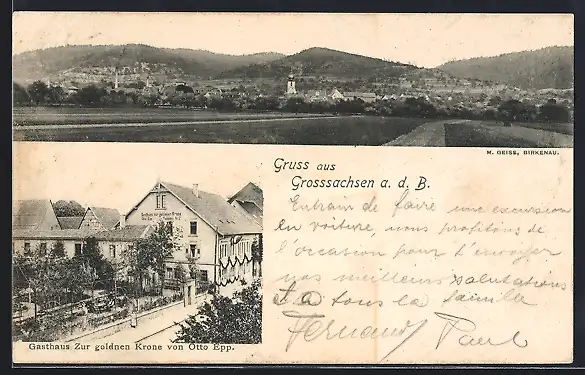 M. GEISS, BIRKENAU.
Gruss aus
Grosssachsen a. d. B.
Entrain de faire une excursion
en voiture, nous profitons de
l'occasion pour t'envoyer
nos meilleurs salutations
et a tous la famille
Fernand Paul
Gasthaus Zur goldnen Krone von Otto Epp.